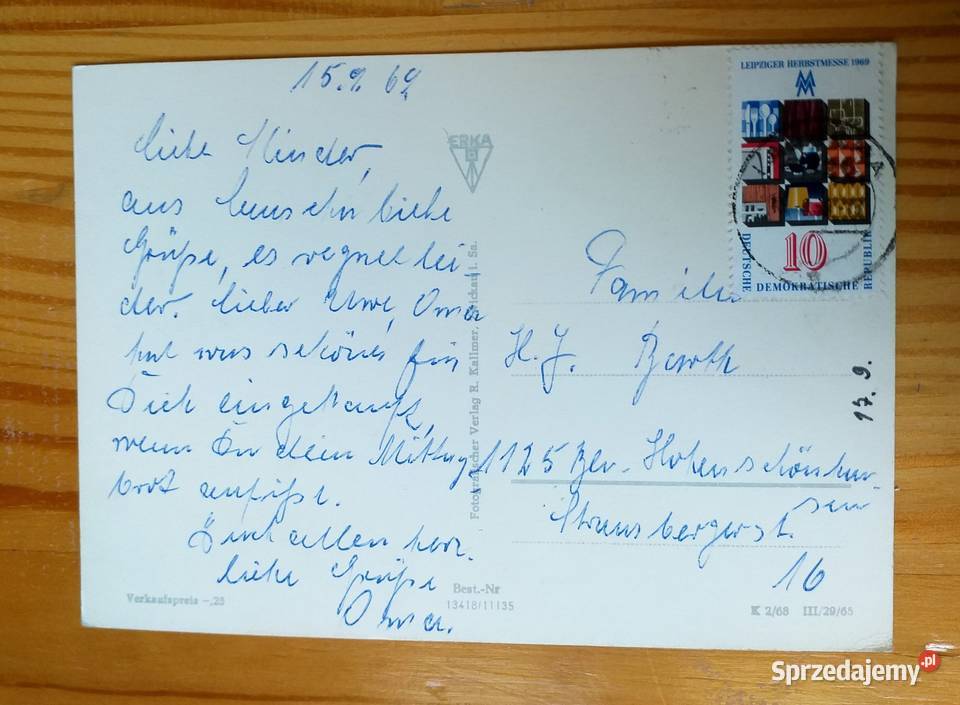 15.9.69
Liebe Kinder,
aus Lauscha liebe
Grüße, es regnet lei-
der. Lieber Uwe, Oma
hat was schönes für
Dich eingekauft,
wenn Du dein Mittag
brot aufißt.
Euch allen herz.
liebe Grüße
Oma.
Verkaufspreis -,25
ERKA
Fotografischer Verlag R. Kallmer, Zwickau i. Sa.
Best.-Nr
13418/11135
LEIPZIGER HERBSTMESSE 1969
10
DEUTSCHE DEMOKRATISCHE REPUBLIK
Familie
H.J. Barth
17.9.
1125 Bln. Hohenschönhau-
sen
Strausbergerst.
16
K 2/68 III/29/65
Sprzedajemy.pl